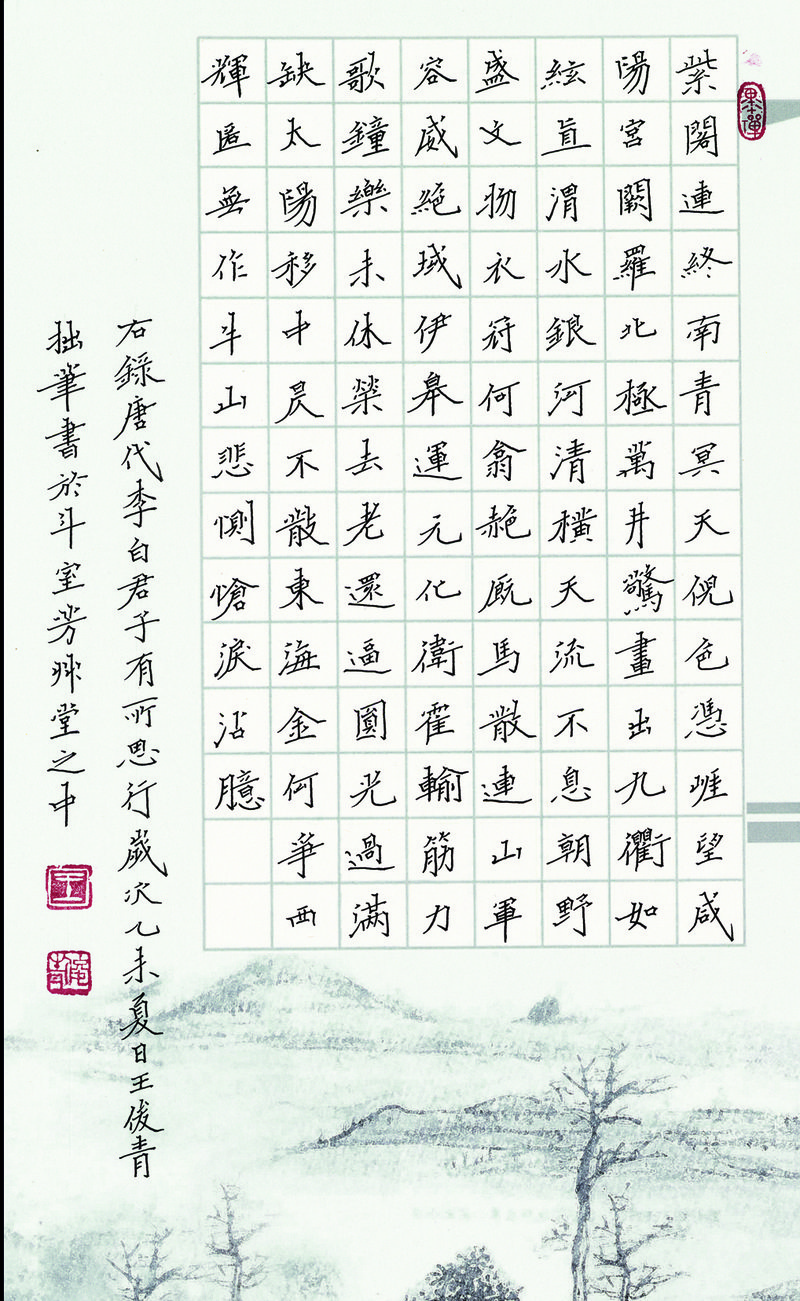 墨禪
紫閣連終南青冥天倪色憑崕望咸
陽宮闕羅北極萬井驚畫出九衢如
絃直渭水銀河清橫天流不息朝野
盛文物衣冠何翕赩厩馬散連山軍
容威絕域伊皋運元化衛霍輸筋力
歌鐘樂未休榮去老還逼圓光過滿
缺太陽移中昃不散東海金何爭西
輝匿無作牛山悲惻愴淚沾臆
右錄唐代李白君子有所思行歲次乙未夏日王俊青
拙筆書於斗室芳堂之中
王
俊青